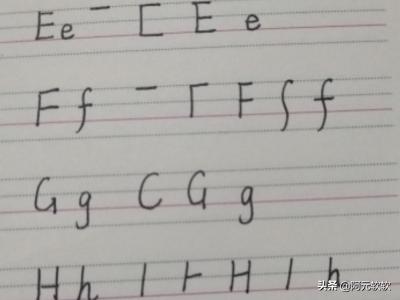 Ee - [ E e
Ff - Γ F ʃ f
Gg C G g
Hh l ⊦ H l h
头条 @阿元软软